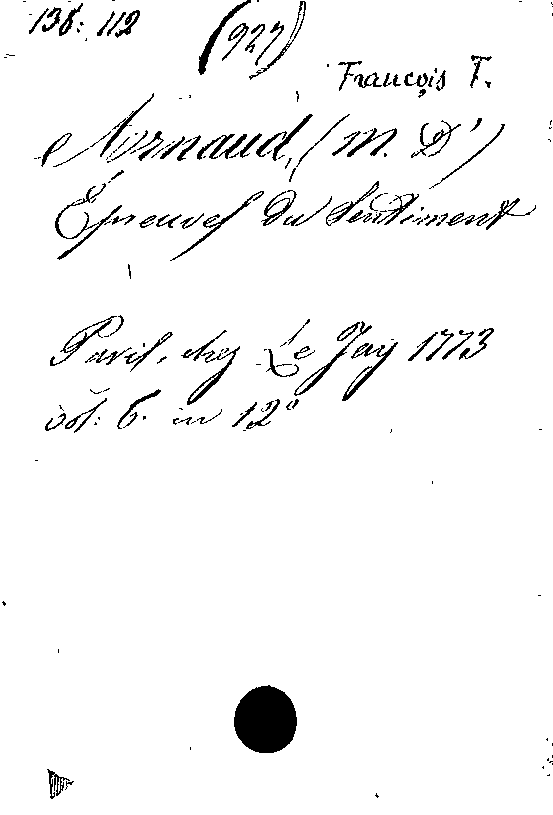 138: 112
(927)
François T.
Arnaud, (M. D')
Épreuves du Sentiment
Paris, chez Le Jay 1773
vol: 6. in 12°